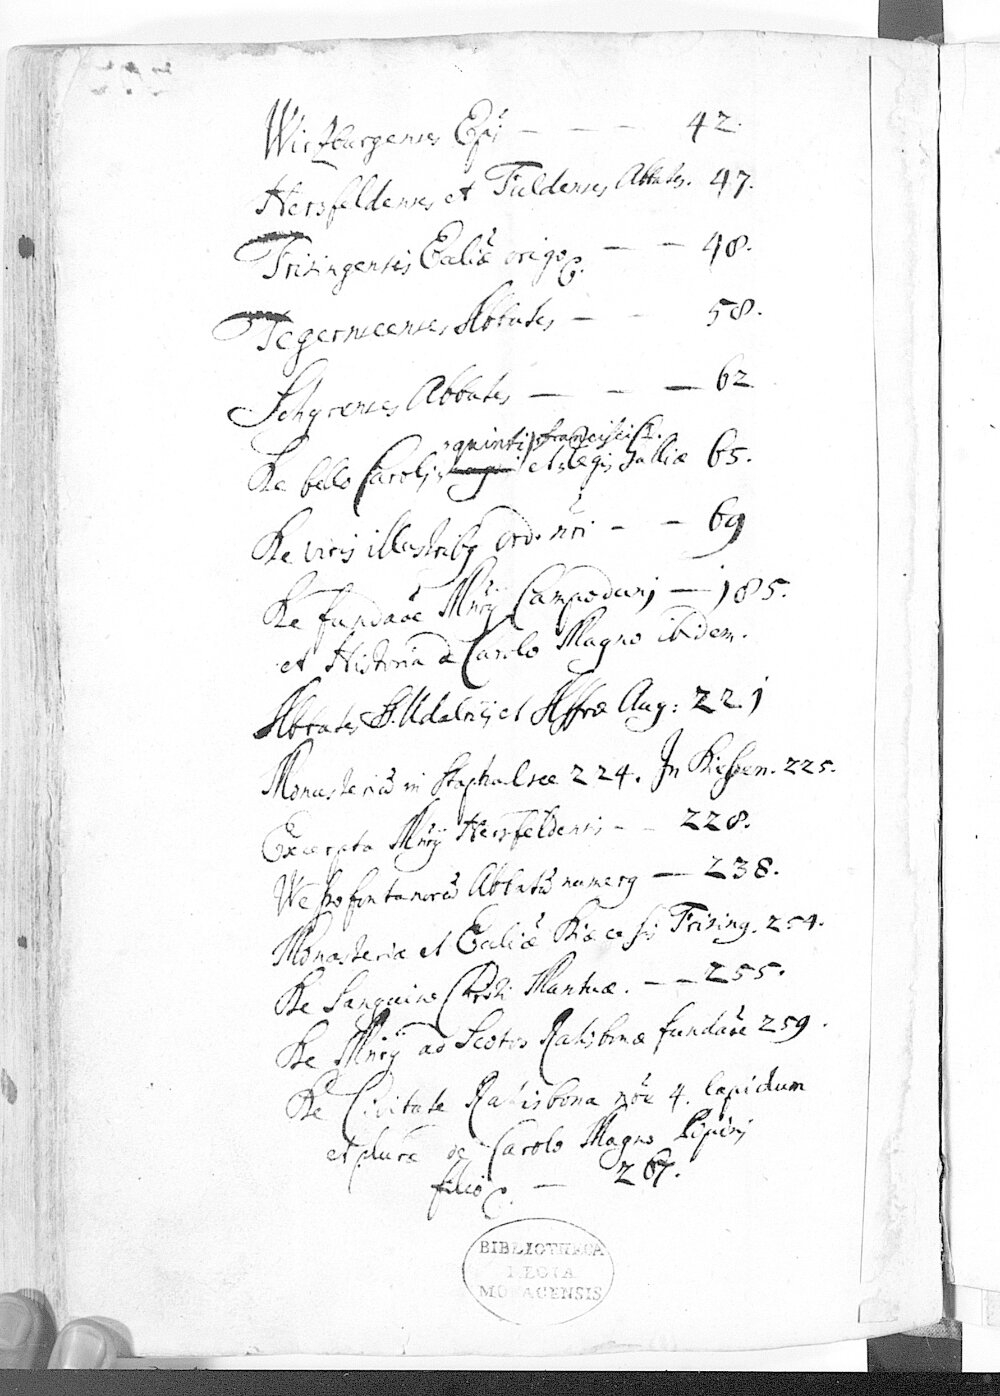 Wirzburgenses Epi — — — 42.
Hersfeldenses et Fuldenses Abbates. 47.
Frisingensis Eccliæ origo — — 48.
Tegernseenses Abbates — — 58.
Schyrenses Abbates — — — 62
quinti, francisci
De bello Caroli et Regis Galliæ 65.
De viris illustribq Ord. nri — — 69
De fundaõe Mrij Campoduni — 185.
et Historia de Carolo Magno ibidem.
Abbates S. Udalrici et Affræ Aug: 221
Monasteriũ in Staphelsee 224. In Diessen. 225.
Excerpta Mrij Hersfeldensis — — 228.
Wessofontanorũ Abbatũ numerq — 238.
Monasteria et Eccliæ Diæcesis Frising. 254.
De Sanguine Christi Mantuæ. — — 255.
De Mrij ad Scotos Ratisbonæ fundaõe 259.
De Civitate Ratisbona 4. lapidum
et plura de Carolo Magno Pipini
filio. — 267.
BIBLIOTHECA
REGIA
MONACENSIS